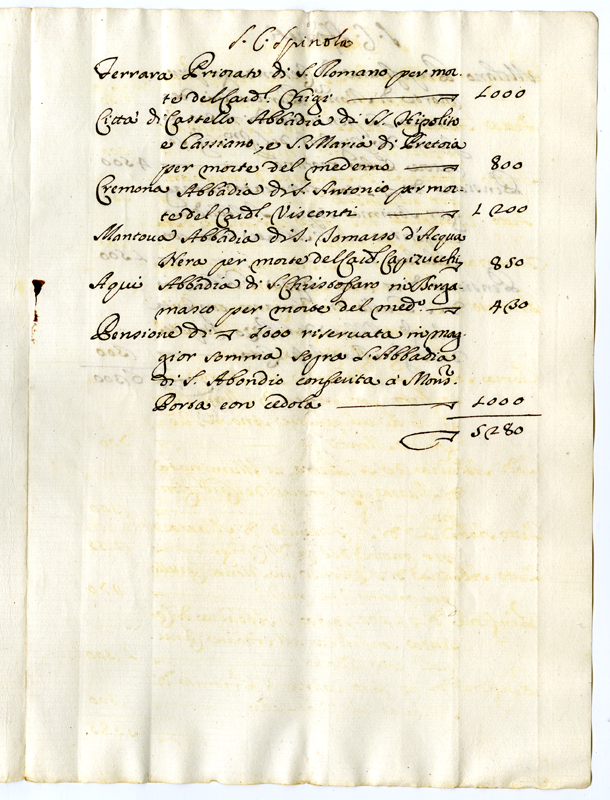 S. C. Spinola
Ferrara Priorato di S. Romano per mor-
te del Cardl. Chigi 1000
Città di Castello Abbadia di SS. Hipolito
e Cassiano, e S. Maria di Pretoia
per morte del medemo 800
Cremona Abbadia di S. Antonio per mor-
te del Cardl. Visconti 1200
Mantova Abbadia di S. Tomasso d'Acqua
Nera per morte del Card. Capizucchi 850
Aqui Abbadia di S. Christofaro in Berga-
masco per morte del medo. 430
Pensione di 1000 riservata in mag-
gior somma sopra l'Abbadia
di S. Abondio conferita à Monsr.
Porta con cedola 1000
5280